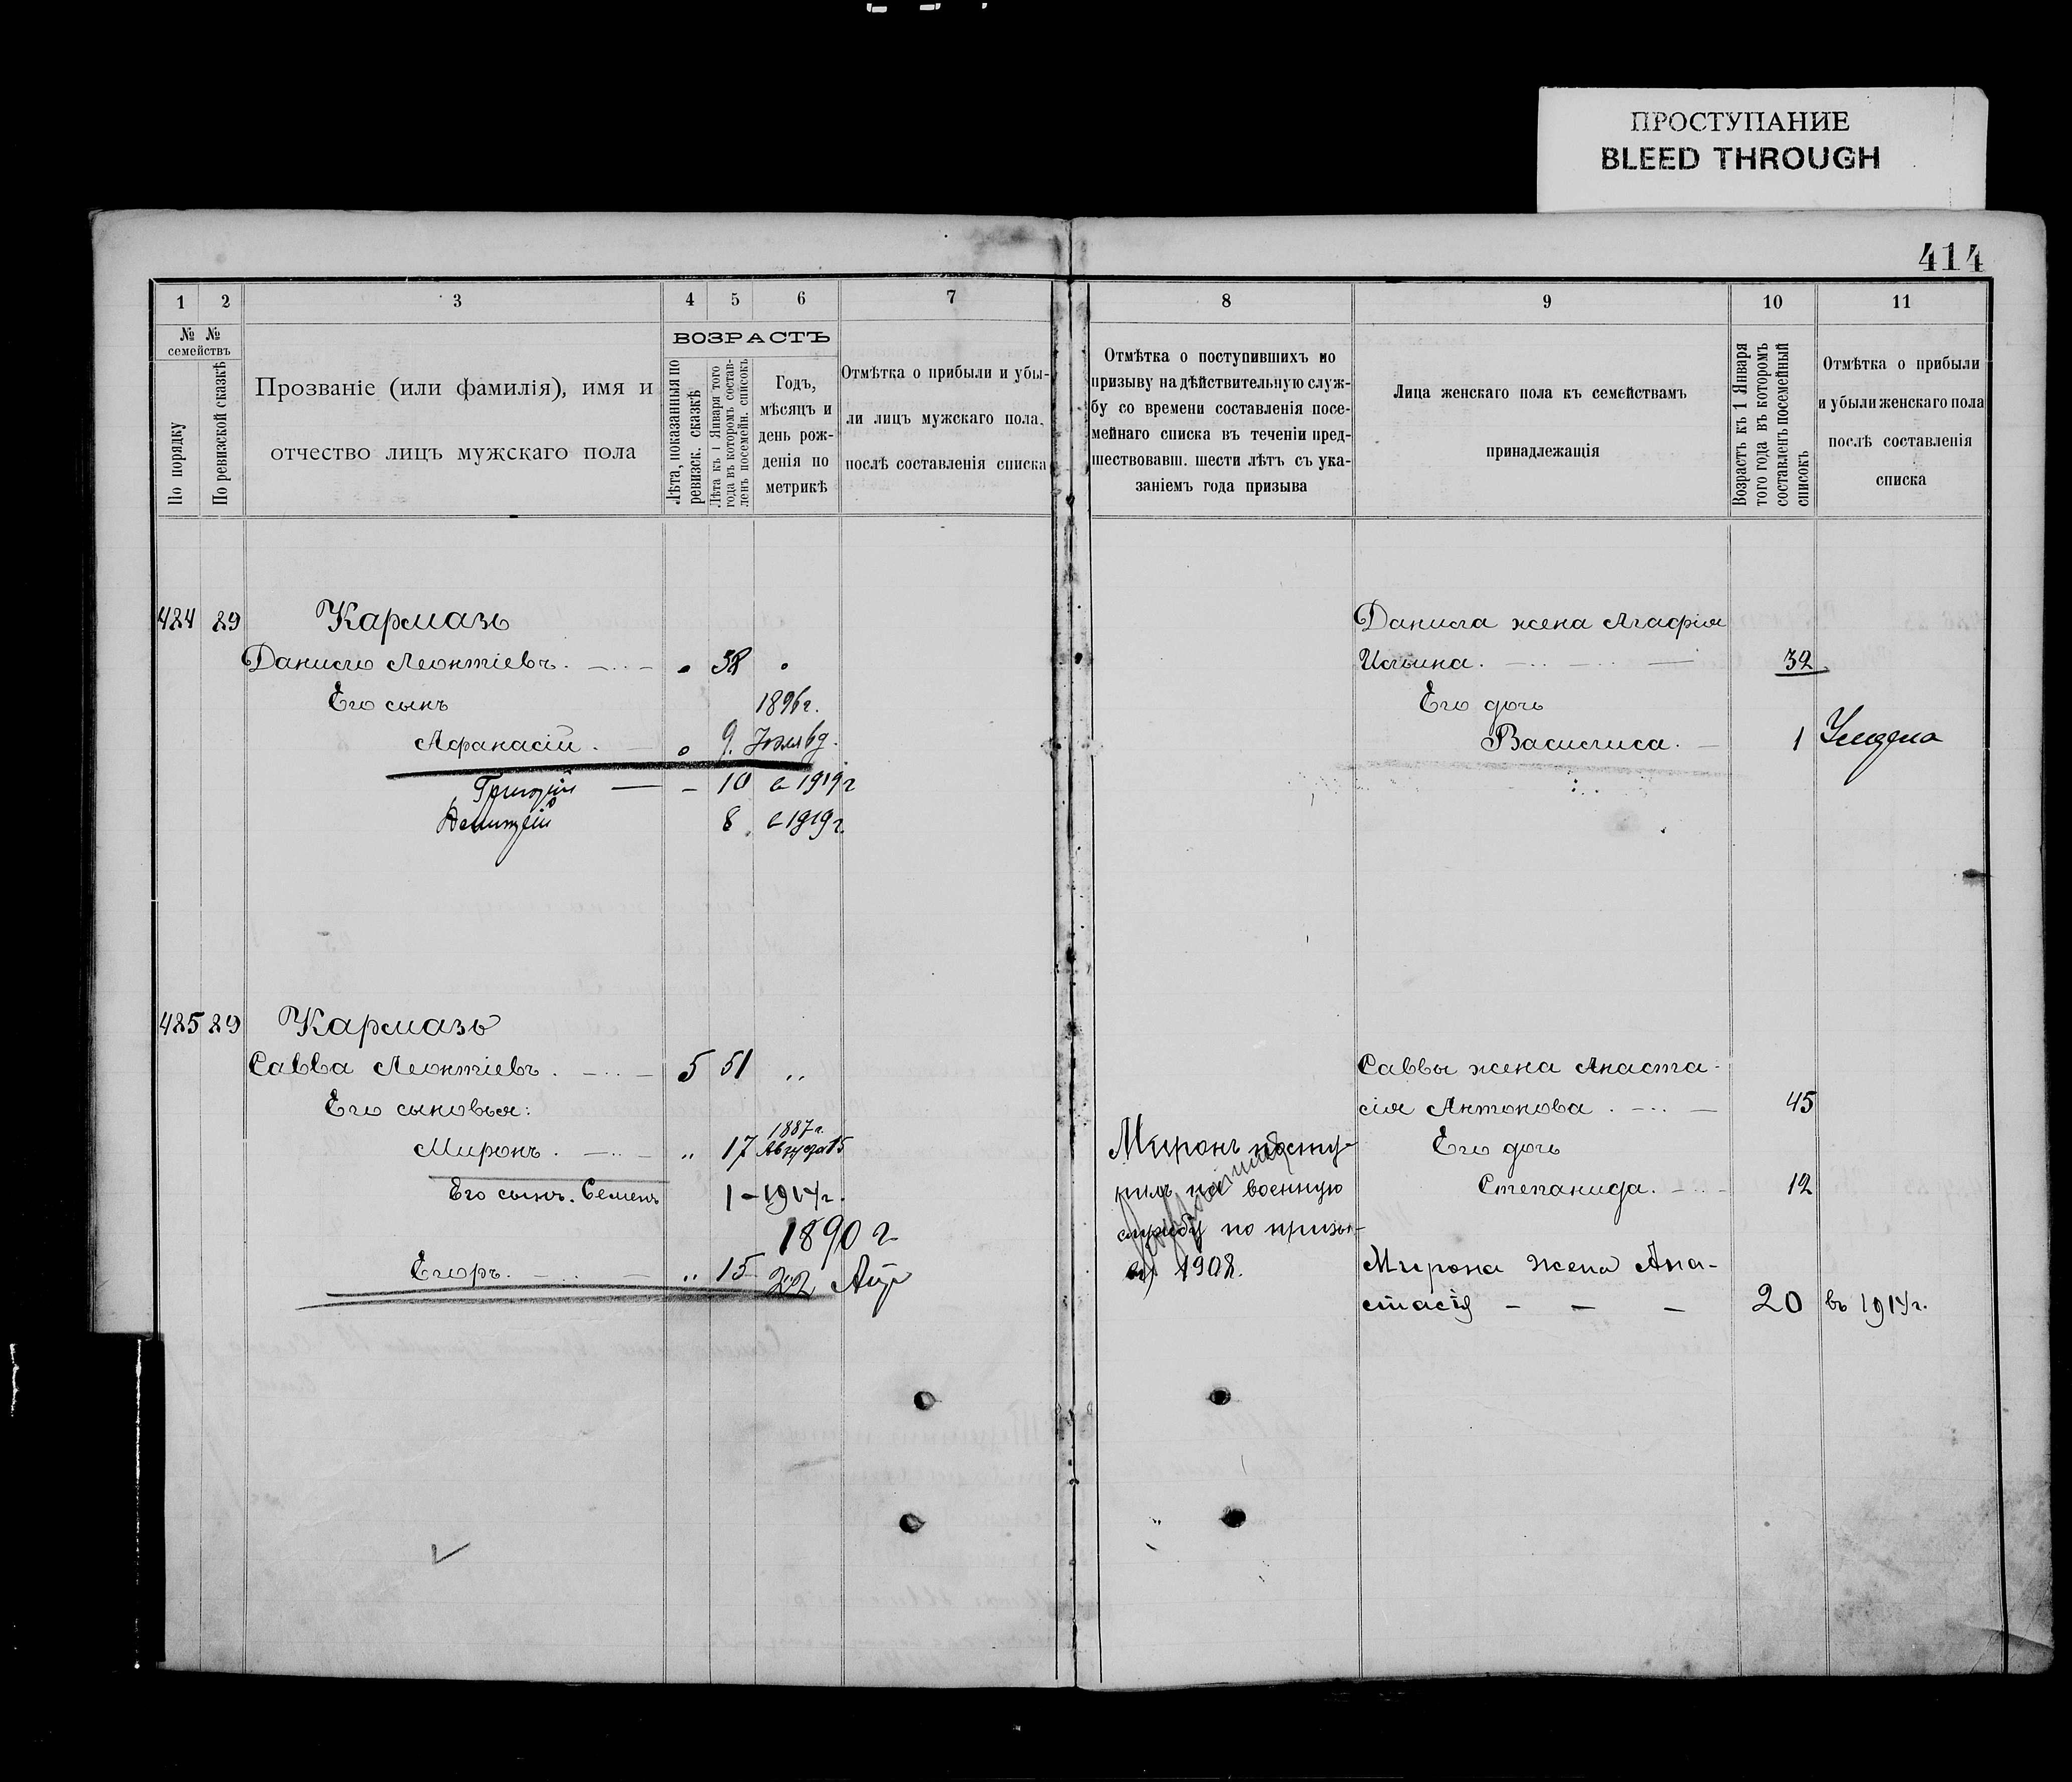 ПРОСТУПАНИЕ
BLEED THROUGH
414
1 2 3 4 5 6 7
№ № семействъ
По порядку
По ревизской сказкѣ
Прозваніе (или фамилія), имя и
отчество лицъ мужскаго пола
ВОЗРАСТЪ
Лѣта, показанныя по
ревизск. сказкѣ
Лѣта къ 1 Января того
года въ которомъ состав-
ленъ посемейн. списокъ
Годъ,
мѣсяцъ и
день рож-
денія по
метрикѣ
Отмѣтка о прибыли и убы-
ли лицъ мужскаго пола,
послѣ составленія списка
484 89 Кармазь
Данило Леонтіевъ. 38
Его сынъ 1896 г.
Афанасій. 9. Іюля 6 д.
Григорій — – 10 в 1919 г
8 в 1919 г.
485 89 Кармазь
Савва Леонтіевъ. 5 51 "
Его сыновья:
1887 г.
Миронъ. " 17 Августа 15
Его сынъ. Семенъ 1 – 1914 г.
1890 г
Егоръ. " 15 22 Апр
8 9 10 11
Отмѣтка о поступившихъ по
призыву на дѣйствительную служ-
бу со времени составленія посе-
мейнаго списка въ теченіи пред-
шествовавш. шести лѣтъ съ ука-
заніемъ года призыва
Лица женскаго пола къ семействамъ
принадлежащія
Возрастъ къ 1 Января
того года въ которомъ
составленъ посемейный
списокъ
Отмѣтка о прибыли
и убыли женскаго пола
послѣ составленія
списка
Данила жена Агафія
Ильина. 32
Его дочь
Василиса. 1
Саввы жена Анаста-
сія Антонова. 45
Миронъ посту-
пилъ на военную
службу по призы-
ву 1908.
Его дочь
Степанида. 12
Мирона жена Ана-
стасія – – – 20 въ 1914 г.